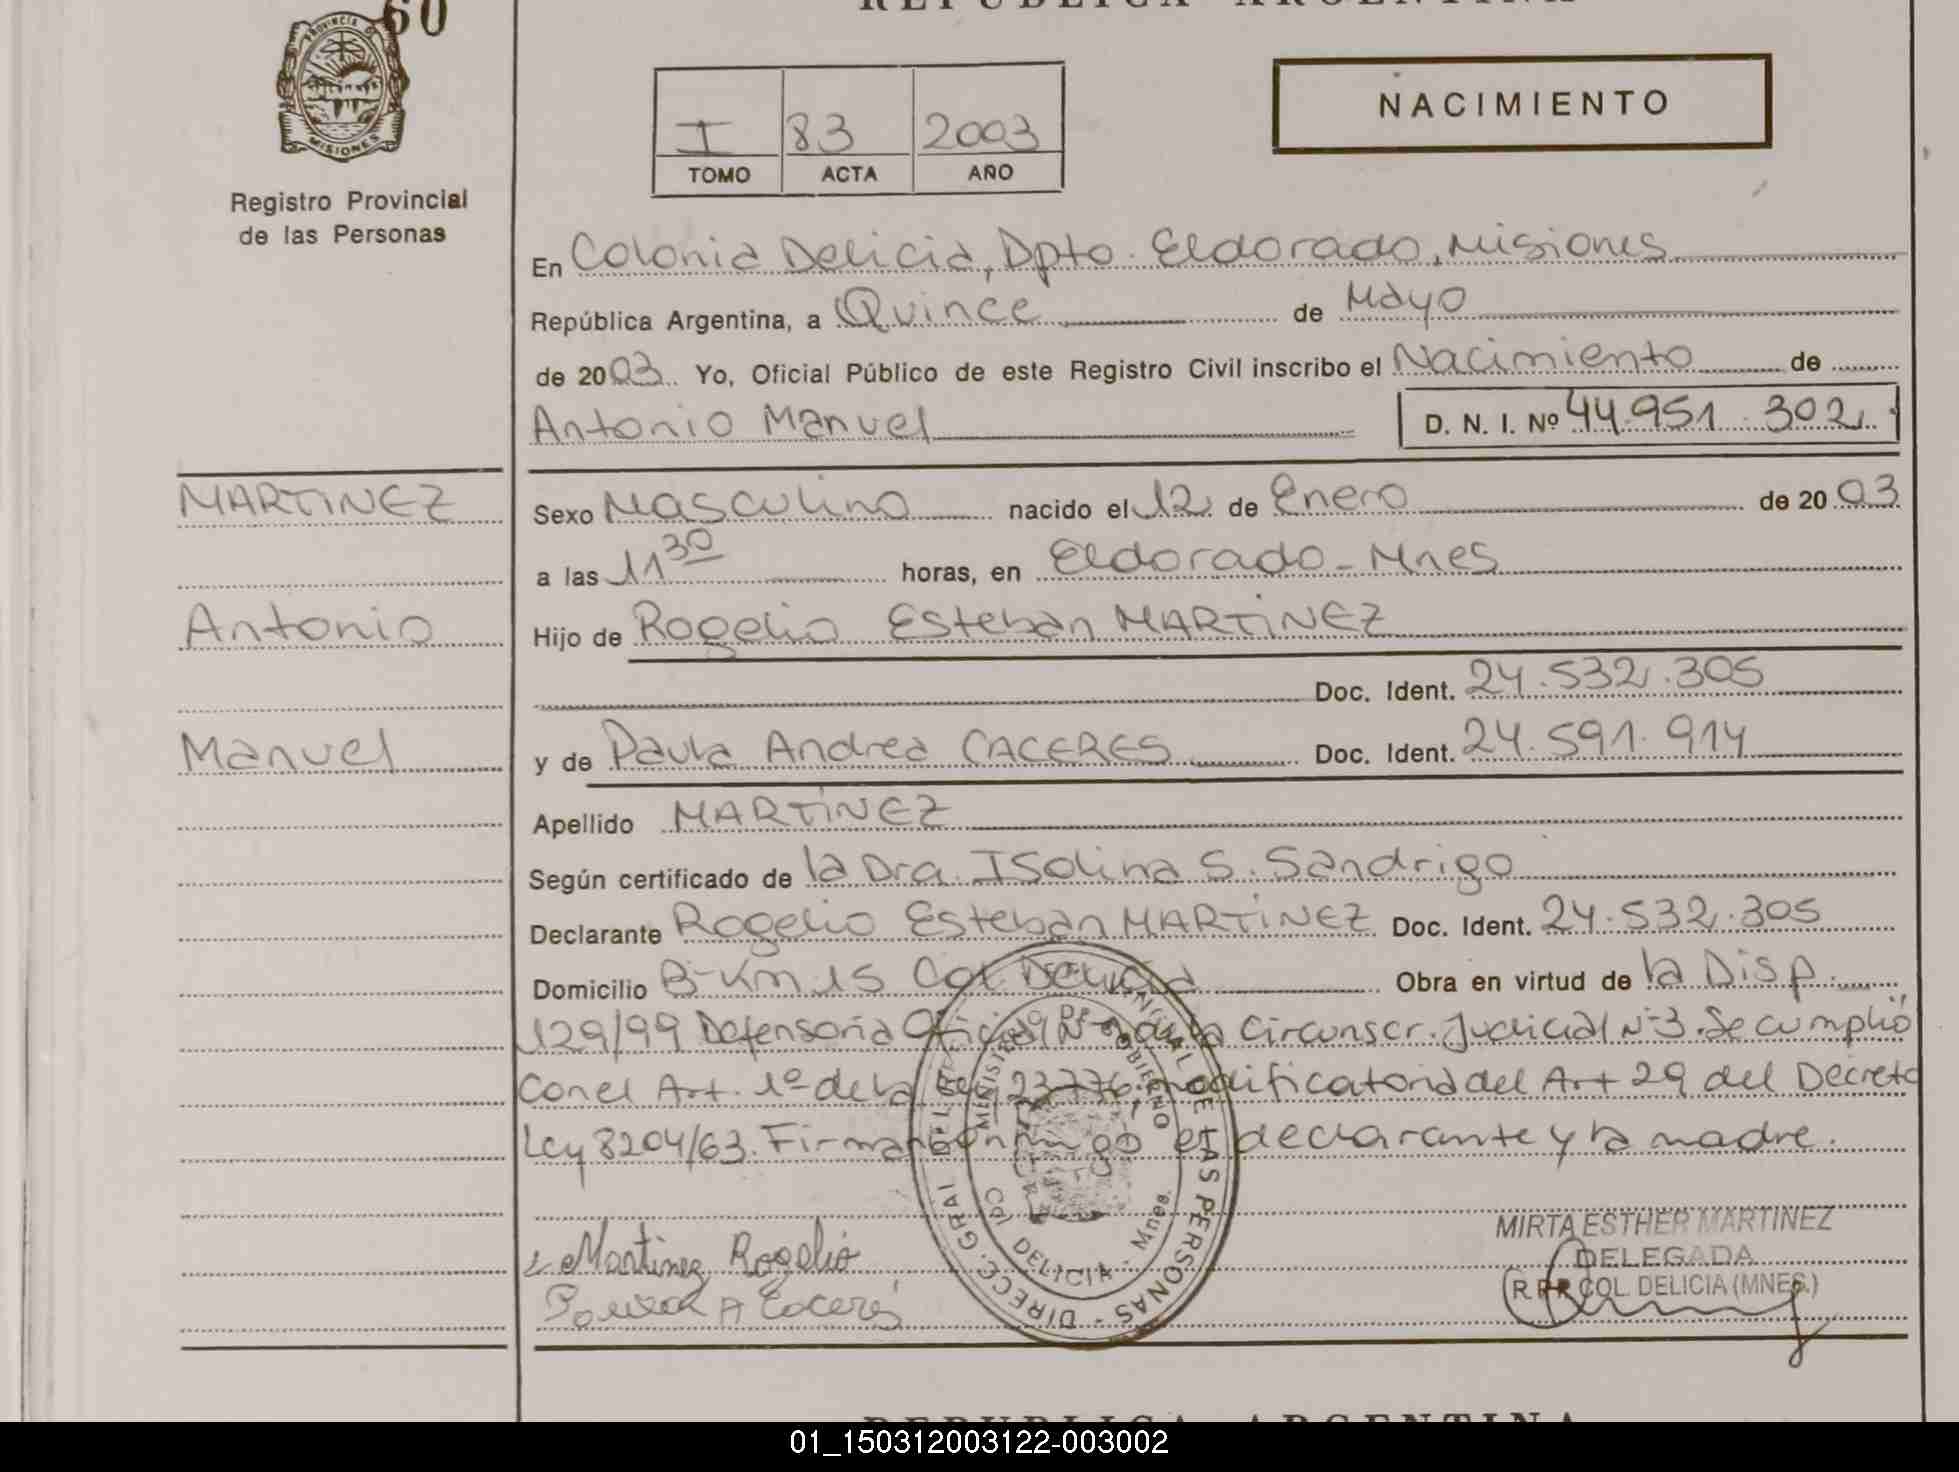 60
REPUBLICA ARGENTINA
PROVINCIA DE
MISIONES
Registro Provincial
de las Personas
I 83 2003
TOMO ACTA AÑO
NACIMIENTO
En Colonia Delicia, Dpto. Eldorado, Misiones
República Argentina, a Quince de Mayo
de 2003. Yo, Oficial Público de este Registro Civil inscribo el Nacimiento de
Antonio Manuel D. N. I. Nº 44.951.302
MARTINEZ
Antonio
Manuel
Sexo Masculino nacido el 12 de Enero de 2003
a las 11 30 horas, en Eldorado - Mnes
Hijo de Rogelio Esteban MARTINEZ
Doc. Ident. 24.532.305
y de Paula Andrea CACERES Doc. Ident. 24.591.914
Apellido MARTINEZ
Según certificado de la Dra. Isolina S. Sandrigo
Declarante Rogelio Esteban MARTINEZ Doc. Ident. 24.532.305
Domicilio B- Km 15 Col Delicia Obra en virtud de la Disp.
129/99 Defensoria Oficial Nº de la Circunscr. Judicial Nº 3. Se cumplió
con el Art. 1º de la Ley 23776, modificatoria del Art 29 del Decreto
Ley 8204/63. Firman conmigo el declarante y la madre.
DIRECC. GRAL. PROVINCIAL DE LAS PERSONAS
MINISTERIO DE GOBIERNO
DELICIA - Mnes.
Martinez Rogelio
Paula A Caceres
MIRTA ESTHER MARTINEZ
DELEGADA
R.P.P. COL. DELICIA (MNES.)
REPUBLICA ARGENTINA
01_150312003122-003002